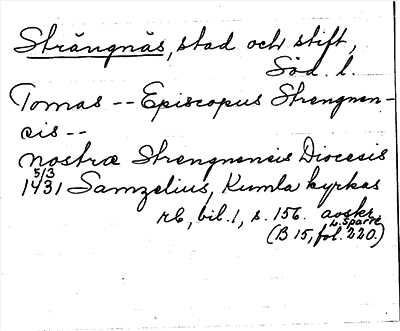 Strängnäs, stad och stift,
Söd. l.
Tomas -- Episcopus Strengnen-
cis --
nostræ Strengnensis Diocesis
5/3
1431 Samzelius, Kumla kyrkas
rb, bil. 1, s. 156. avskr.
L. Sparre
(B 15, fol. 220.)